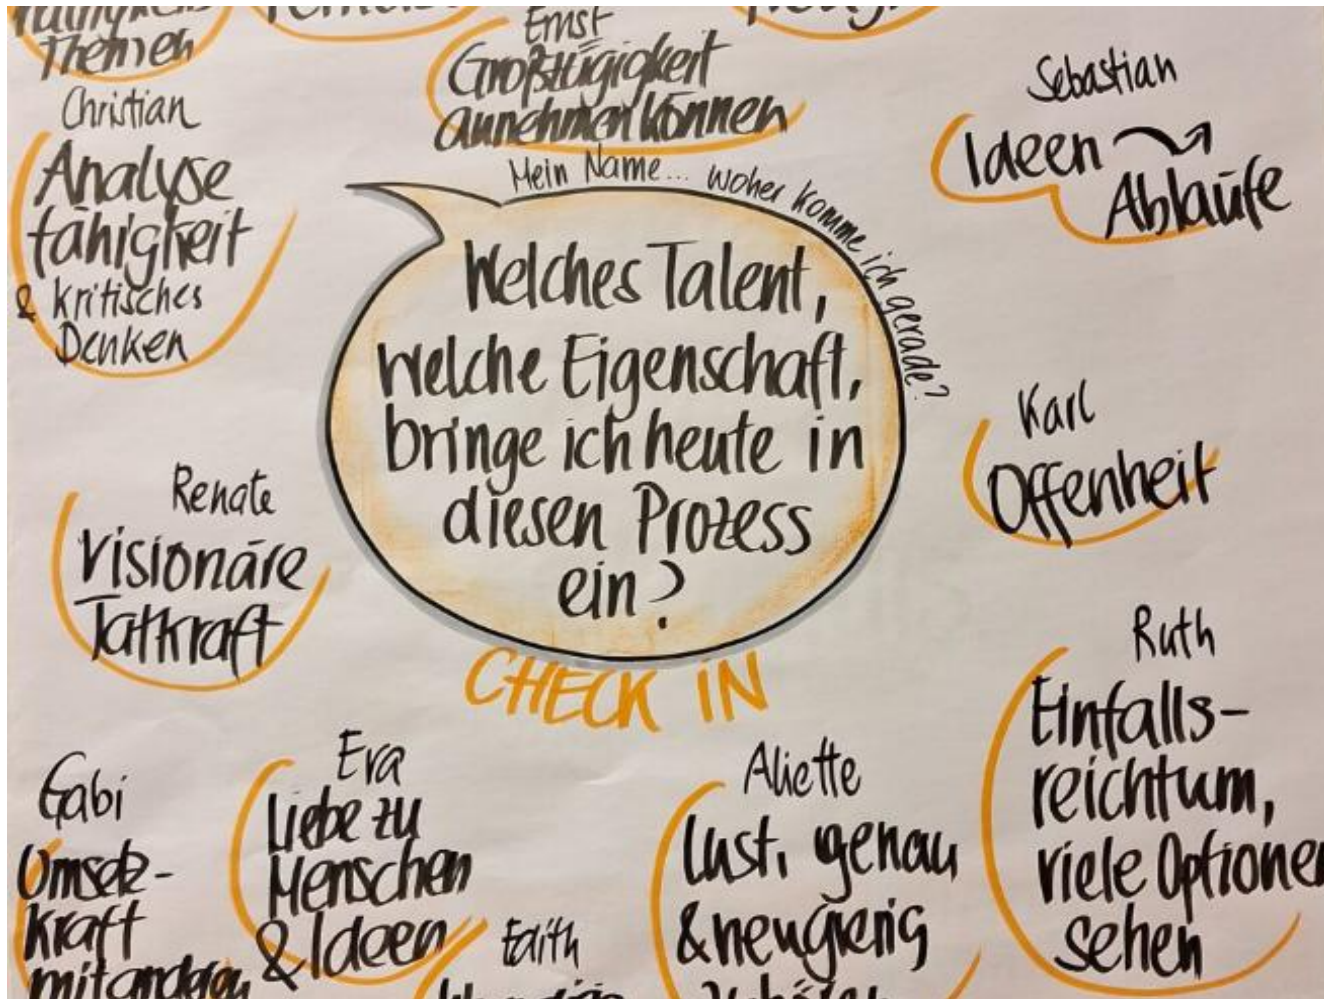 Themen
Ernst
Großzügigkeit
annehmen können
Christian
Analyse
fähigkeit
& kritisches
Denken
Sebastian
Ideen
Abläufe
Mein Name... woher komme ich gerade?
Welches Talent,
welche Eigenschaft,
bringe ich heute in
diesen Prozess
ein?
CHECK IN
Karl
Offenheit
Renate
Visionäre
Tatkraft
Ruth
Einfalls-
reichtum,
viele Optionen
sehen
Gabi
Umsetz-
kraft
mit anderen
Eva
Liebe zu
Menschen
& Ideen
Edith
Aliette
Lust, genau
& neugierig